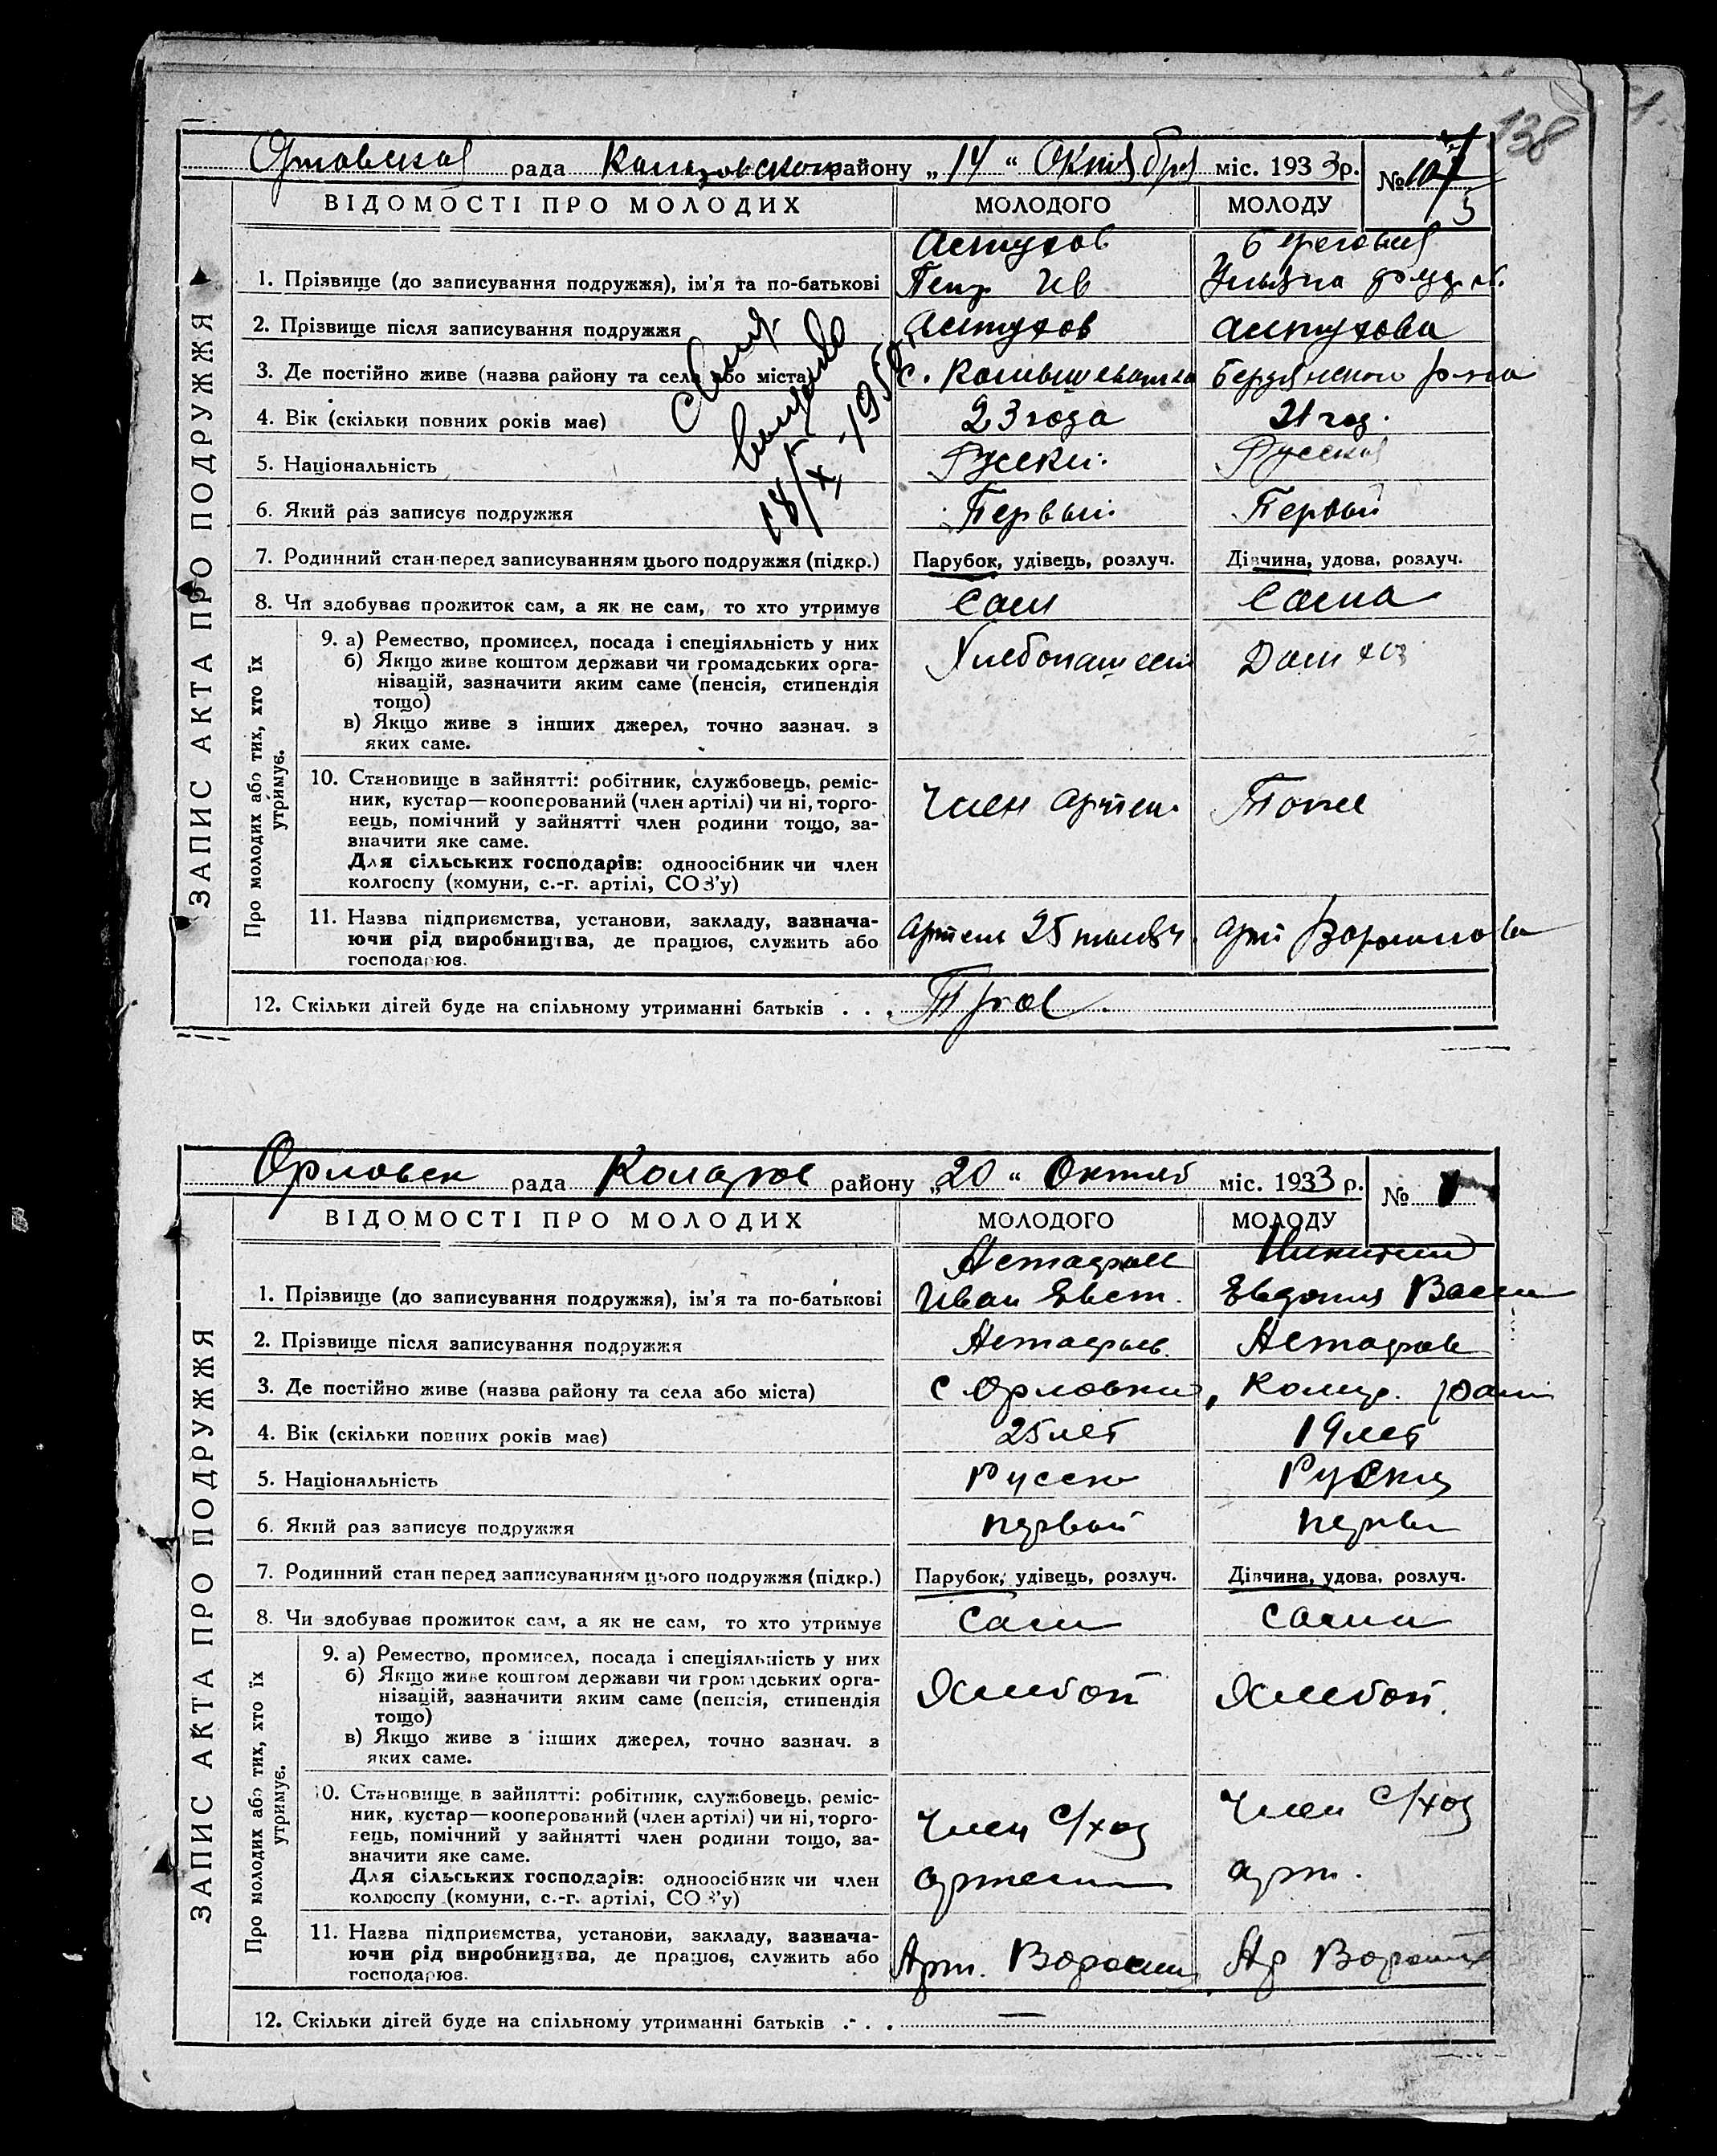 138
Орловская рада района „14“ Октября міс. 1933р. №
ВІДОМОСТІ ПРО МОЛОДИХ МОЛОДОГО МОЛОДУ
Астухов Береговая
1. Прізвище (до записування подружжя), ім'я та по-батькові Петр Ив Ульяна
2. Прізвище після записування подружжя Астухов Астухова
3. Де постійно живе (назва району та села або міста) с. Бердянского р-на
4. Вік (скільки повних років має) 23 года 21 год.
5. Національність Русский Русская
6. Який раз записує подружжя Первый Первый
7. Родинний стан перед записуванням цього подружжя (підкр.) Парубок, удівець, розлуч. Дівчина, удова, розлуч.
8. Чи здобуває прожиток сам, а як не сам, то хто утримує Сам Сама
9. а) Ремество, промисел, посада і спеціяльність у них
б) Якщо живе коштом держави чи громадських орга-
нізацій, зазначити яким саме (пенсія, стипендія
тощо)
в) Якщо живе з інших джерел, точно зазнач. з
яких саме.
Хлебопашест Дом хоз
10. Становище в зайнятті: робітник, службовець, реміс-
ник, кустар—кооперований (член артілі) чи ні, торго-
вець, помічний у зайнятті член родини тощо, за-
значити яке саме.
Для сільських господарів: одноосібник чи член
колгоспу (комуни, с.-г. артілі, СОЗ'у)
Член артел. Тоже
11. Назва підприємства, установи, закладу, зазнача-
ючи рід виробництва, де працює, служить або
господарює.
Артель 25 тысяч. Арт Ворошилова
12. Скільки дітей буде на спільному утриманні батьків . . . Трое
ЗАПИС АКТА ПРО ПОДРУЖЖЯ
Про молодих або тих, хто їх
утримує.
18/X-195
Орловск рада Коларов району „20“ Октяб міс. 1933 р. №
ВІДОМОСТІ ПРО МОЛОДИХ МОЛОДОГО МОЛОДУ
Астафьев Никитин
1. Прізвище (до записування подружжя), ім'я та по-батькові Иван Евст. Евдокия Васи
2. Прізвище після записування подружжя Астафьев. Астафьев
3. Де постійно живе (назва району та села або міста) с Орловки, Колар. рай
4. Вік (скільки повних років має) 25 лет 19 лет
5. Національність Русск Руския
6. Який раз записує подружжя первый первы
7. Родинний стан перед записуванням цього подружжя (підкр.) Парубок, удівець, розлуч. Дівчина, удова, розлуч.
8. Чи здобуває прожиток сам, а як не сам, то хто утримує Сам Сама
9. а) Ремество, промисел, посада і спеціяльність у них
б) Якщо живе коштом держави чи громадських орга-
нізацій, зазначити яким саме (пенсія, стипендія
тощо)
в) Якщо живе з інших джерел, точно зазнач. з
яких саме.
Хлебоп Хлебоп.
10. Становище в зайнятті: робітник, службовець, реміс-
ник, кустар—кооперований (член артілі) чи ні, торго-
вець, помічний у зайнятті член родини тощо, за-
значити яке саме.
Для сільських господарів: одноосібник чи член
колгоспу (комуни, с.-г. артілі, СОЗ'у)
Член с/хоз Член с/хоз
артели арт.
11. Назва підприємства, установи, закладу, зазнача-
ючи рід виробництва, де працює, служить або
господарює.
Арт. Ворошил Ар Ворошил
12. Скільки дітей буде на спільному утриманні батьків . . . —
ЗАПИС АКТА ПРО ПОДРУЖЖЯ
Про молодих або тих, хто їх
утримує.